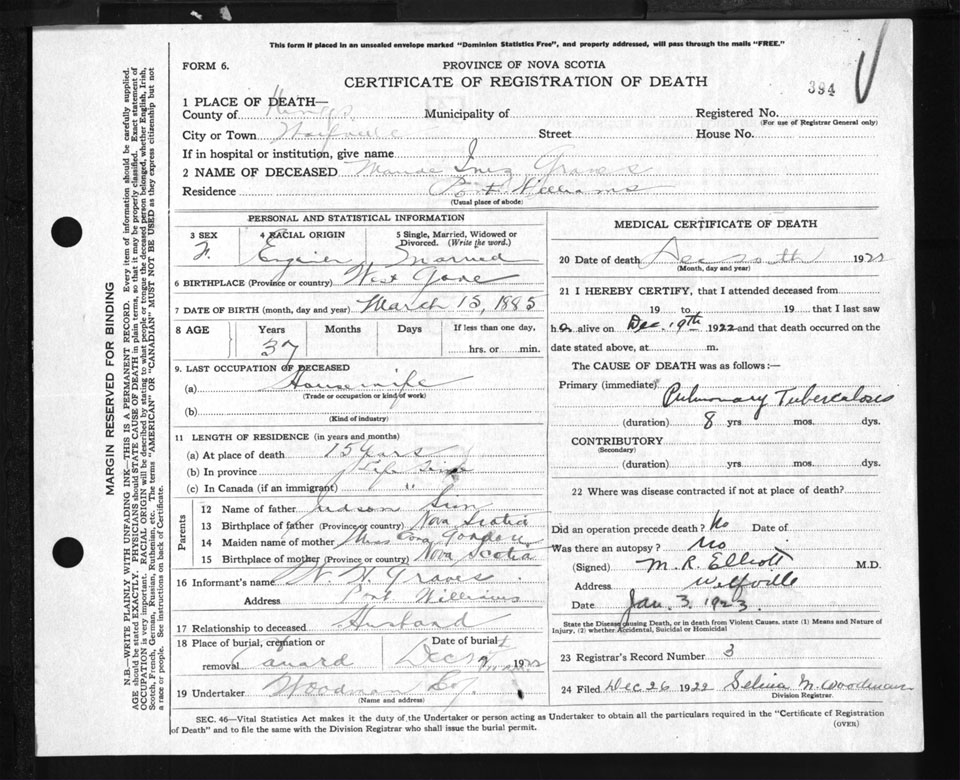 This form if placed in an unsealed envelope marked "Dominion Statistics Free", and properly addressed, will pass through the mails "FREE."
FORM 6.
PROVINCE OF NOVA SCOTIA
CERTIFICATE OF REGISTRATION OF DEATH
394
1 PLACE OF DEATH—
County of Kings Municipality of Registered No.
(For use of Registrar General only)
City or Town Wolfville Street House No.
If in hospital or institution, give name
2 NAME OF DECEASED Maude Inez Graves
Residence Port Williams
(Usual place of abode)
PERSONAL AND STATISTICAL INFORMATION
3 SEX 4 RACIAL ORIGIN 5 Single, Married, Widowed or Divorced. (Write the word.)
F. Married
6 BIRTHPLACE (Province or country) West Gore
7 DATE OF BIRTH (month, day and year) March 15, 1885
8 AGE Years Months Days If less than one day,
37 hrs. or min.
9. LAST OCCUPATION OF DECEASED
(a) Housewife
(Trade or occupation or kind of work)
(b)
(Kind of industry)
11 LENGTH OF RESIDENCE (in years and months)
(a) At place of death 15 years
(b) In province Life time
(c) In Canada (if an immigrant) "
Parents
12 Name of father Judson
13 Birthplace of father (Province or country) Nova Scotia
14 Maiden name of mother Miss
15 Birthplace of mother (Province or country) Nova Scotia
16 Informant's name Graves
Address Port Williams
17 Relationship to deceased Husband
18 Place of burial, cremation or removal Canard Date of burial Dec 1922
19 Undertaker Woodman Co.
(Name and address)
MEDICAL CERTIFICATE OF DEATH
20 Date of death Dec 1922
(Month, day and year)
21 I HEREBY CERTIFY, that I attended deceased from
19 to 19 that I last saw
h er alive on Dec. 19th 1922 and that death occurred on the
date stated above, at m.
The CAUSE OF DEATH was as follows:—
Primary (immediate) Pulmonary Tuberculosis
(duration) 8 yrs. mos. dys.
CONTRIBUTORY
(Secondary)
(duration) yrs. mos. dys.
22 Where was disease contracted if not at place of death?
Did an operation precede death? No Date of
Was there an autopsy? No
(Signed) M. R. Elliott M.D.
Address Wolfville
Date Jan. 3. 1923.
State the Disease causing Death, or in death from Violent Causes, state (1) Means and Nature of Injury, (2) whether Accidental, Suicidal or Homicidal
23 Registrar's Record Number 3
24 Filed Dec 26 1922 Selina M. Woodman
Division Registrar.
SEC. 46—Vital Statistics Act makes it the duty of the Undertaker or person acting as Undertaker to obtain all the particulars required in the "Certificate of Registration
of Death" and to file the same with the Division Registrar who shall issue the burial permit.
(OVER)
MARGIN RESERVED FOR BINDING
N.B.—WRITE PLAINLY WITH UNFADING INK—THIS IS A PERMANENT RECORD. Every item of information should be carefully supplied.
AGE should be stated EXACTLY. PHYSICIANS should STATE CAUSE OF DEATH in plain terms, so that it may be properly classified. Exact statement of
OCCUPATION is very important. RACIAL ORIGIN will be described by stating to what people or tongue the deceased person belonged, whether English, Irish,
Scotch, French, German, Russian, Ruthenian, etc. The terms "AMERICAN" OR "CANADIAN" MUST NOT BE USED as they express citizenship but not
a race or people. See instructions on back of Certificate.